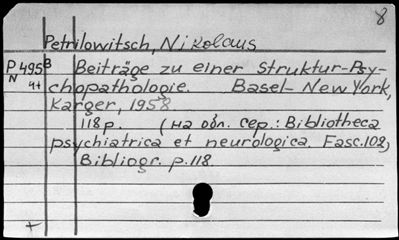 8
Petrilowitsch, Nikolaus
P 495B Beiträge zu einer Struktur-Psy-
N 4+ chopathologie. Basel-New York,
Karger, 1958
118p. (на обл. сер.: Bibliotheca
psychiatrica et neurologica. Fasc. 102,
Bibliogr. p. 118
+